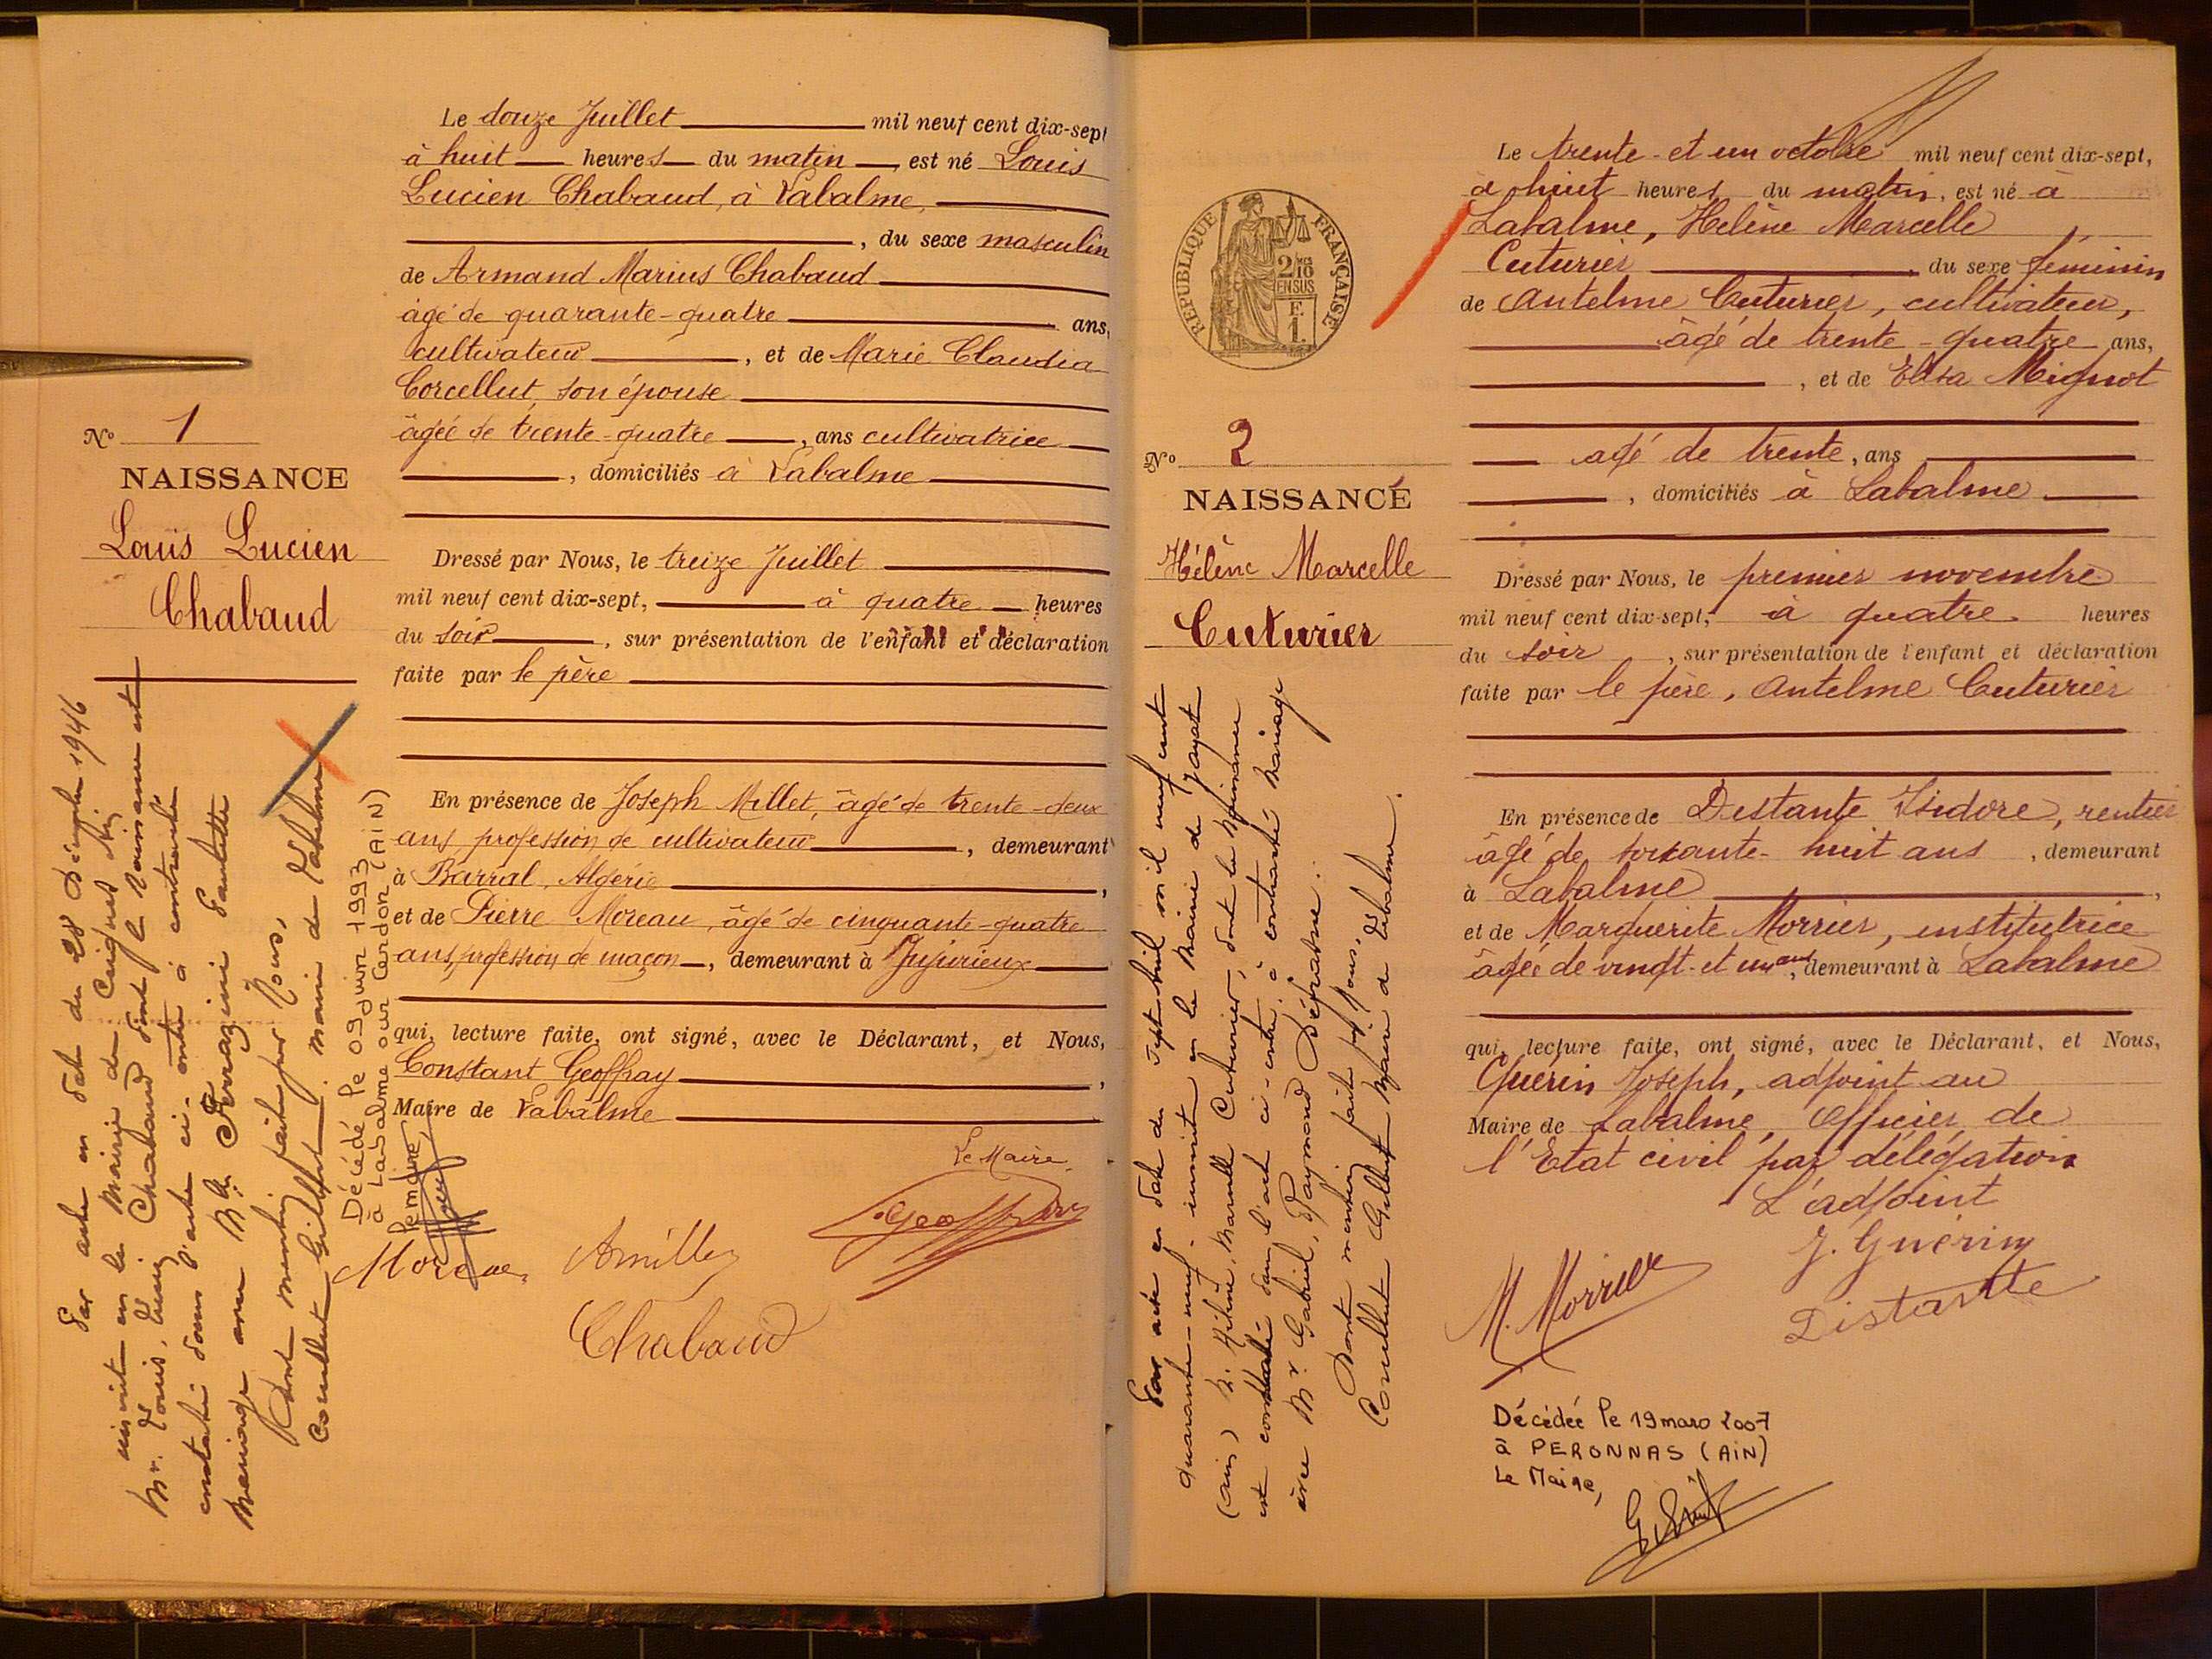 Le douze Juillet mil neuf cent dix-sept
à huit heures du matin, est né Louis
Lucien Chabaud, à Labalme,
, du sexe masculin
de Armand Marius Chabaud
âgé de quarante-quatre ans,
cultivateur, et de Marie Claudia
Corcellut, son épouse
âgée de trente-quatre, ans cultivatrice
, domiciliés à Labalme
Dressé par Nous, le treize Juillet
mil neuf cent dix-sept, à quatre heures
du soir, sur présentation de l'enfant et déclaration
faite par le père
En présence de Joseph Millet, âgé de trente-deux
ans, profession de cultivateur, demeurant
à Barral, Algérie,
et de Pierre Moreau, âgé de cinquante-quatre
ans, profession de maçon, demeurant à Jujurieux
qui, lecture faite, ont signé, avec le Déclarant, et Nous,
Constant Geoffray,
Maire de Labalme
Le Maire,
Geoffray
Moreau
Chabaud
No 1
NAISSANCE
Louis Lucien
Chabaud
Par acte en date du 28 Décembre 1946
inscrit en la Mairie de
Mr. Louis, Lucien Chabaud dont la naissance est
constatée dans l'acte ci-contre à contracté
mariage avec Mlle Ferrazzini Paulette
Dont mention faite par Nous,
Corcellut Gilbert maire de Labalme
Décédé le 09 juin 1993
à Labalme sur Cerdon (AIN)
Le maire,
REPUBLIQUE FRANÇAISE
2/10
EN SUS
F.
1.
No 2
NAISSANCE
Hélène Marcelle
Cuturier
Par acte en date du sept avril mil neuf cent
quarante-neuf, inscrit en la Mairie de Jayat
(ain) M. Hélène, Marcelle Cuturier, dont la naissance
est constatée dans l'acte ci-contre, à contracté mariage
avec Mr. Gabriel, Raymond
Dont mention faite par Nous,
Corcellut Gilbert Maire de Labalme.
Le trente-et un octobre mil neuf cent dix-sept,
à huit heures du matin, est né à
Labalme, Helène Marcelle
Cuturier, du sexe féminin
de Antelme Cuturier, cultivateur,
âgé de trente-quatre ans,
, et de Elisa Mignot
agé de trente, ans
, domiciliés à Labalme
Dressé par Nous, le premier novembre
mil neuf cent dix-sept, à quatre heures
du soir, sur présentation de l'enfant et déclaration
faite par le père, Antelme Cuturier
En présence de Distante Isidore, rentier
âgé de soixante-huit ans, demeurant
à Labalme,
et de Marguerite Morrier, institutrice
âgée de vingt-et un ans, demeurant à Labalme
qui, lecture faite, ont signé, avec le Déclarant, et Nous,
Guérin Joseph, adjoint au
Maire de Labalme, Officier de
l'Etat civil par délégation
L'adjoint
J. Guérin
M. Morrier
Distante
Décédée le 19 mars 2007
à PERONNAS (AIN)
Le Maire,